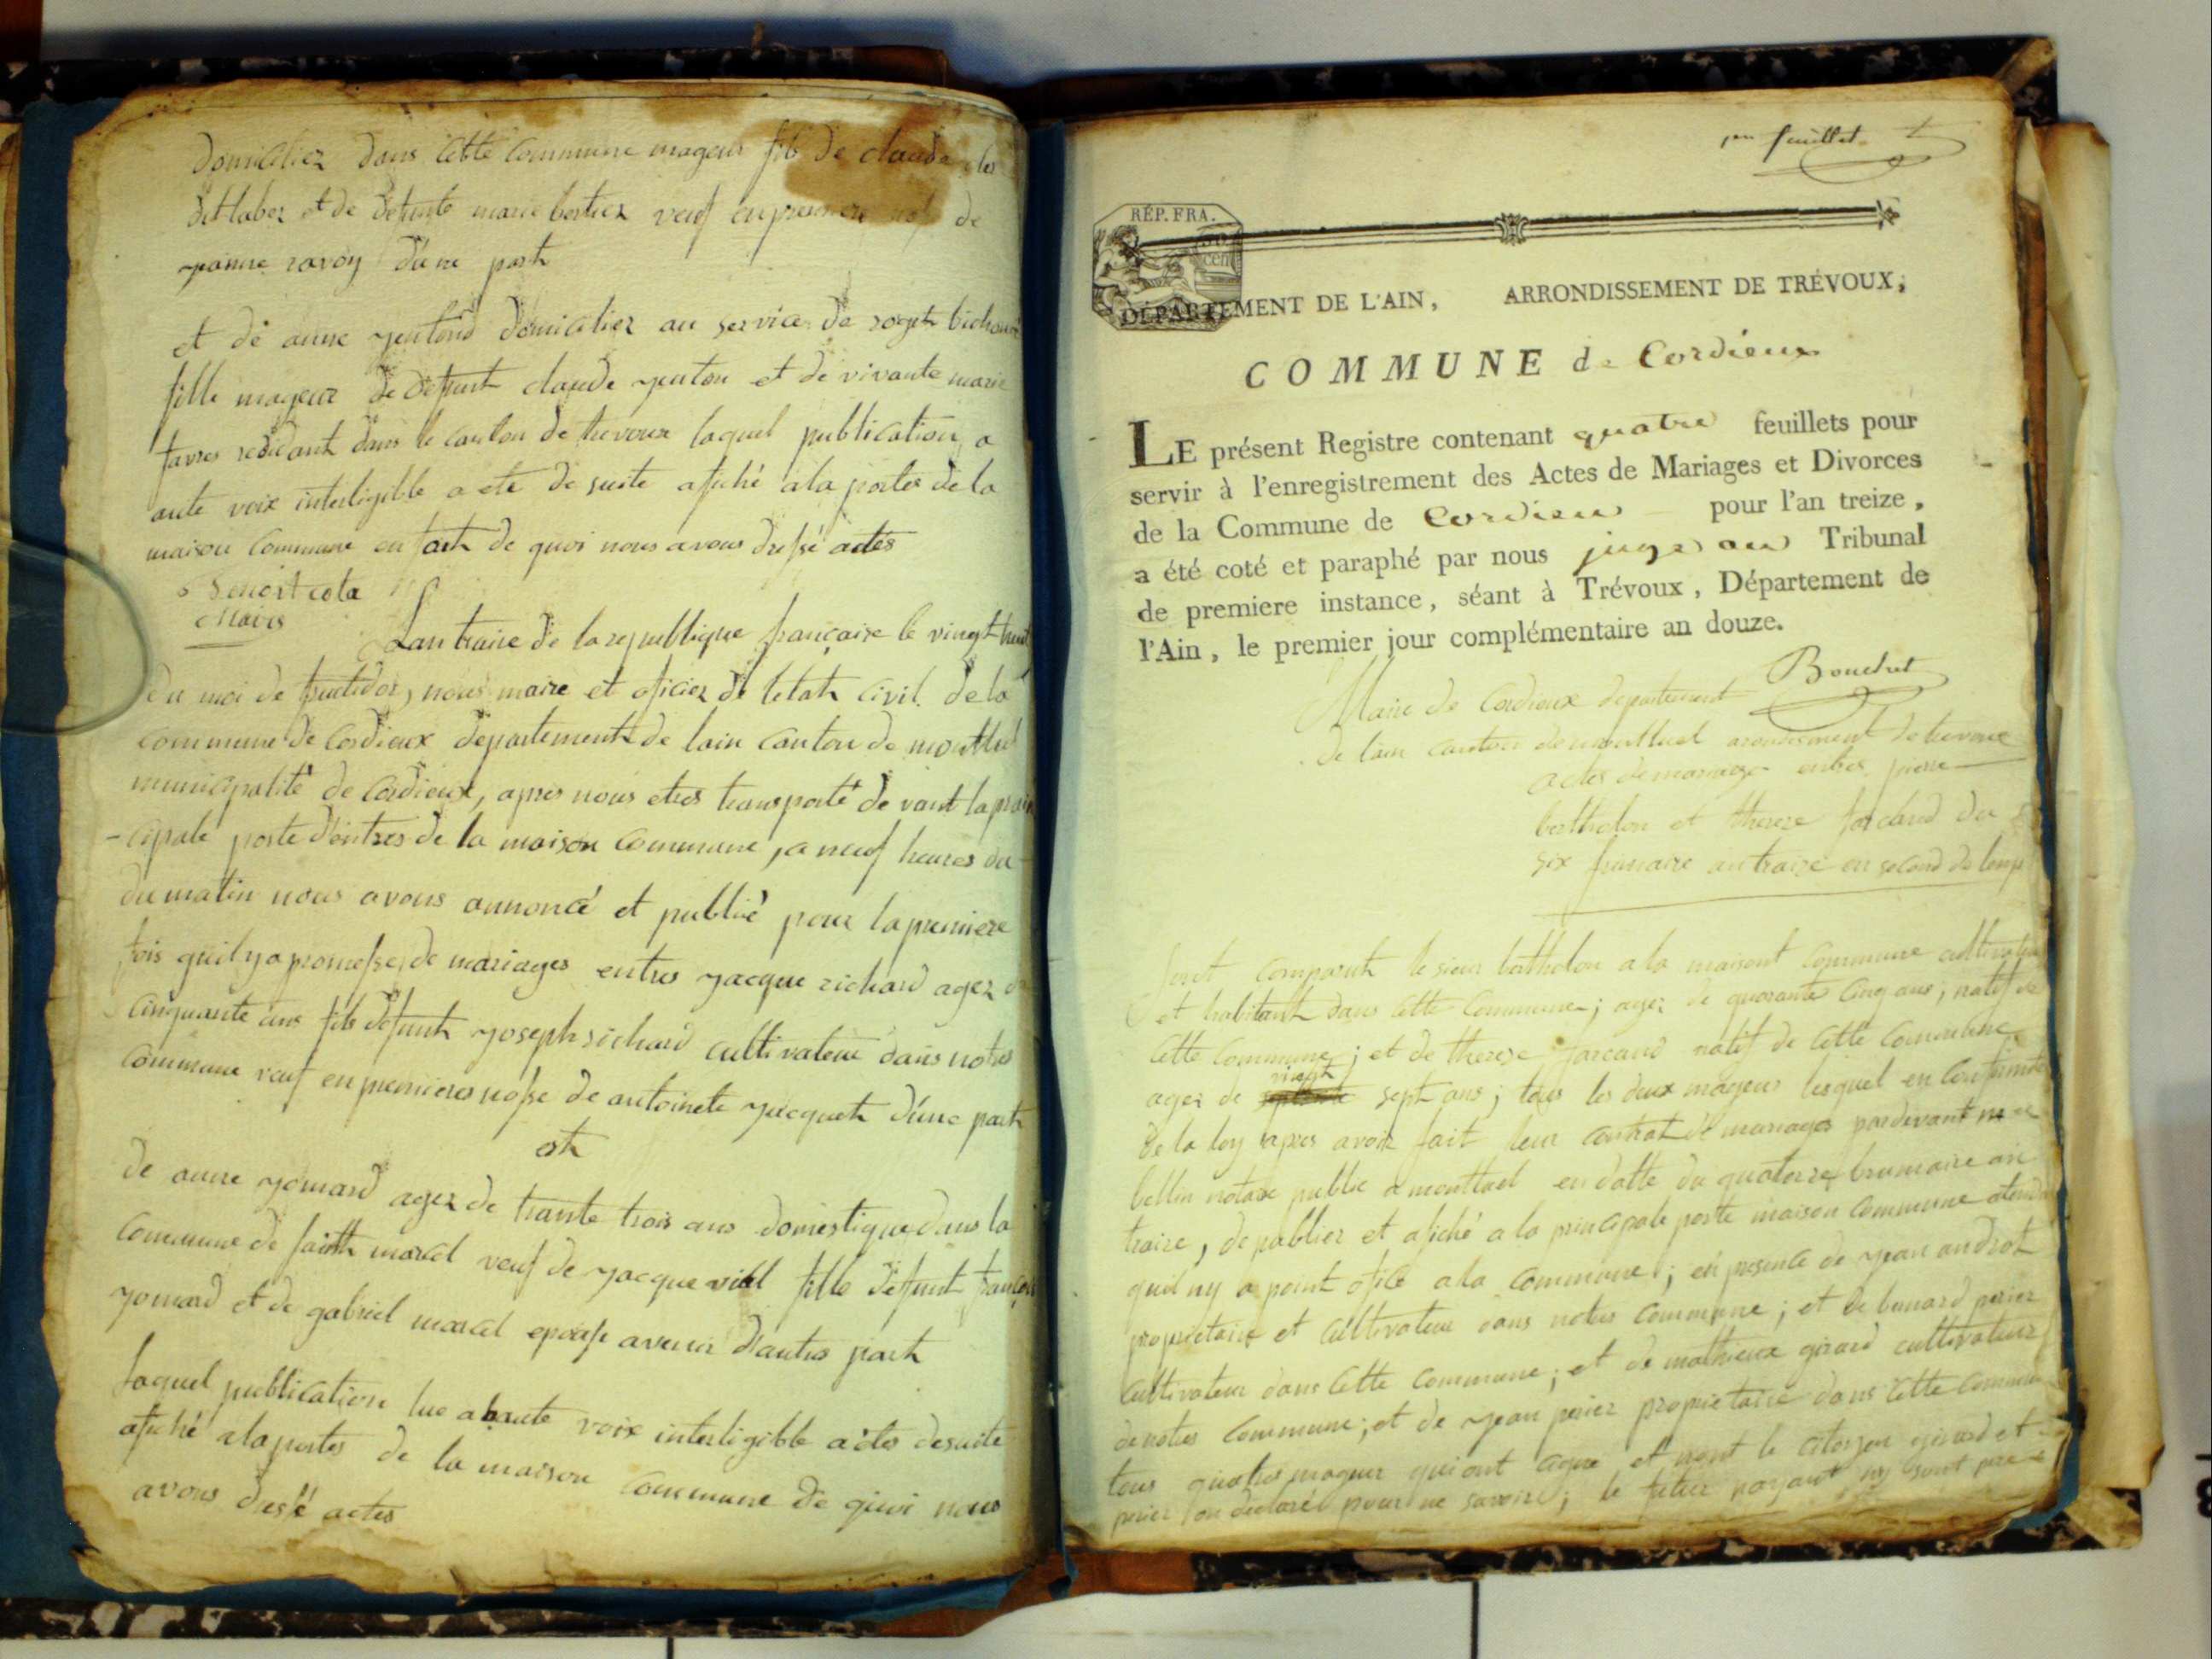 domicilier dans cette commune mageur fils de claude
dit laber et de defunte marie bertier veuf en premiere nose de
jeanne ravoy d'une part
et de anne jenton domicilier au service de roget
fille mageur de defunt claude jenton et de vivante marie
favres residant dans le canton de trevoux laquel publication a
aute voix interligible a eté de suite afiché a la portes de la
maison commune en fait de quoi nous avons dressé actes
Benoit cola
Maire
Lan traise de la republique française le vingt huit
du moi de fructidor, nous maire et oficier de letat civil de la
commune de Cordieux departement de lain canton de montluel
municipalité de Cordieux, apres nous etres transporté de vant la prin
-cipale porte d'entres de la maison commune, a neuf heures du
du matin nous avons annoncé et publié pour la premiere
fois quil y a promesse de mariages entres jacque richard agez de
cinquante ans fils defunt joseph richard cultivateur dans notres
commune veuf en premieres nosse de antoinete jacquet d'une part
et
de anne jomard agez de trante trois ans domestique dans la
commune de saint marcel veuf de jacque vial fille defunt françois
jomard et de gabriel marcel epouse avenir d'autres part
laquel publication lue a haute voix interligible a etes desuite
afiché a la portes de la maison commune de quoi nous
avons dressé actes
1er feuillet
RÉP. FRA.
50 cen
DÉPARTEMENT DE L'AIN, ARRONDISSEMENT DE TRÉVOUX,
COMMUNE de Cordieux
LE présent Registre contenant quatre feuillets pour
servir à l'enregistrement des Actes de Mariages et Divorces
de la Commune de Cordieu pour l'an treize,
a été coté et paraphé par nous juge au Tribunal
de premiere instance, séant à Trévoux, Département de
l'Ain, le premier jour complémentaire an douze.
Bouchet
Maire de Cordieux departement
de lain canton de montluel arondisment de trevoux
actes de mariage entres pierre
bertholon et therese forcand du
six frimaire an traize en second de temp
sont comparut le sieur bertholon a la maisont commune cultivateur
et habitant dans cette commune; agez de quarante cinq ans; natif de
cette commune; et de therese forcand natif de cette commune
agez de vingt sept ans; tous les deux mageurs lesquel en conformité
de la loy apres avoir fait leur contrat de mariages pardevant
bellin notaire public a montluel en datte du quatorze brumaire an
traize, de publier et afiché a la principale porte maison commune atendu
quil ny a point ofice a la commune; en presence de jean androt
proprietaire et cultivateur dans notres commune; et de benard perier
cultivateur dans cette commune; et de mathieux girard cultivateur
de notres commune; et de jean perier proprietaire dans cette commune
tous quatres mageur qui ont signé et nont le citoyen girard et
perier on declaré pour ne savoir; le futur